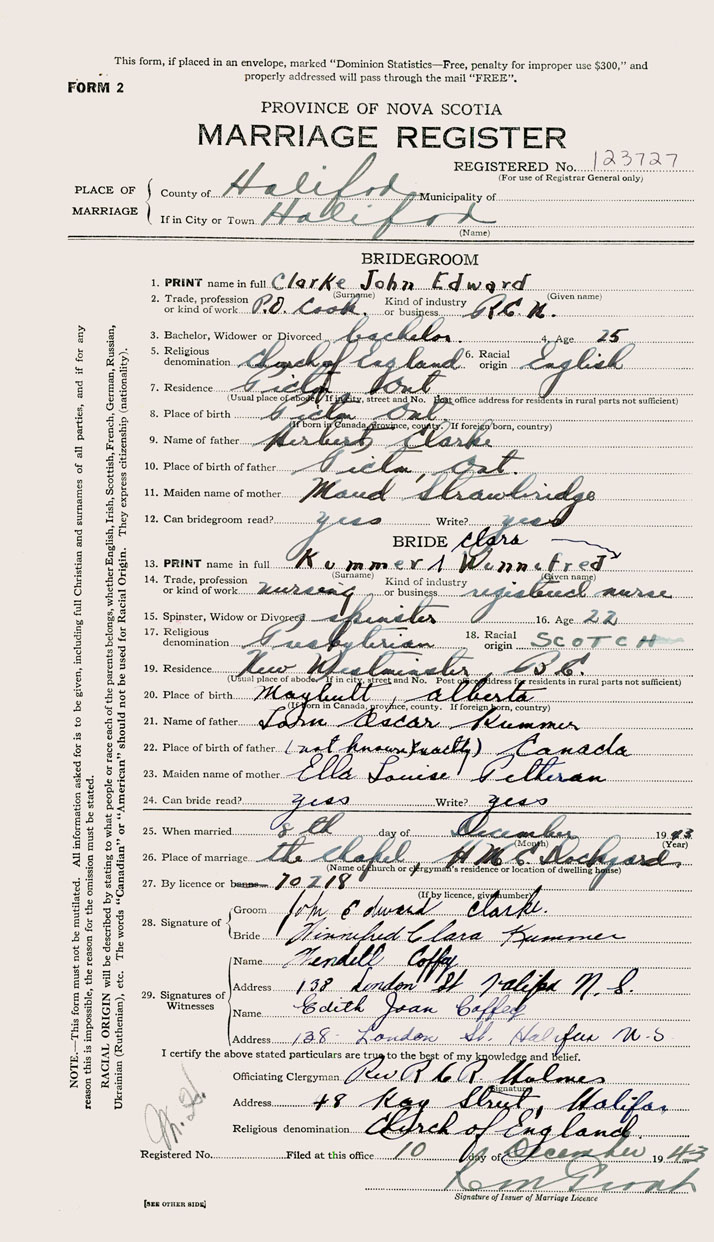 This form, if placed in an envelope, marked "Dominion Statistics—Free, penalty for improper use $300," and
properly addressed will pass through the mail "FREE".
FORM 2
PROVINCE OF NOVA SCOTIA
MARRIAGE REGISTER
REGISTERED No. 123727
(For use of Registrar General only)
PLACE OF MARRIAGE
County of Halifax Municipality of
If in City or Town Halifax
(Name)
BRIDEGROOM
1. PRINT name in full Clarke John Edward
(Surname) (Given name)
2. Trade, profession or kind of work P.O. Cook. Kind of industry or business R.C.N.
3. Bachelor, Widower or Divorced bachelor. 4. Age 25
5. Religious denomination Church of England 6. Racial origin English
7. Residence Picton Ont
(Usual place of abode. If in city, street and No. Post office address for residents in rural parts not sufficient)
8. Place of birth Picton Ont.
(If born in Canada, province, county. If foreign born, country)
9. Name of father Herbert Clarke
10. Place of birth of father Picton, Ont.
11. Maiden name of mother Maud Strawbridge
12. Can bridegroom read? yess Write? yess
BRIDE Clara
13. PRINT name in full Kummer Winnifred
(Surname) (Given name)
14. Trade, profession or kind of work nursing Kind of industry or business registered nurse
15. Spinster, Widow or Divorced spinster 16. Age 22
17. Religious denomination Presbyterian 18. Racial origin SCOTCH
19. Residence New Westminster, B.C.
(Usual place of abode. If in city, street and No. Post office address for residents in rural parts not sufficient)
20. Place of birth Maybutt, alberta
(If born in Canada, province, county. If foreign born, country)
21. Name of father John Oscar Kummer
22. Place of birth of father (not known exactly) Canada
23. Maiden name of mother Ella Louise
24. Can bride read? yess Write? yess
25. When married 8th day of December 1943
(Month) (Year)
26. Place of marriage the Chapel, H.M.C. Dockyard,
(Name of church or clergyman's residence or location of dwelling house)
27. By licence or banns 70218
(If by licence, give number)
28. Signature of
Groom John Edward Clarke.
Bride Winnifred Clara Kummer
29. Signatures of Witnesses
Name Wendell Coffey
Address 138 London St Halifax N.S.
Name Edith Joan Coffey
Address 138 London St. Halifax N.S
I certify the above stated particulars are true to the best of my knowledge and belief.
Officiating Clergyman Rev R C R Holmes
(Signature)
Address 48 Kay Street, Halifax
Religious denomination Church of England.
Registered No. Filed at this office 10 day of December 1943
Signature of Issuer of Marriage Licence
[SEE OTHER SIDE]
NOTE.—This form must not be mutilated. All information asked for is to be given, including full Christian and surnames of all parties, and if for any
reason this is impossible, the reason for the omission must be stated.
RACIAL ORIGIN will be described by stating to what people or race each of the parents belongs, whether English, Irish, Scottish, French, German, Russian,
Ukrainian (Ruthenian), etc. The words "Canadian" or "American" should not be used for Racial Origin. They express citizenship (nationality).